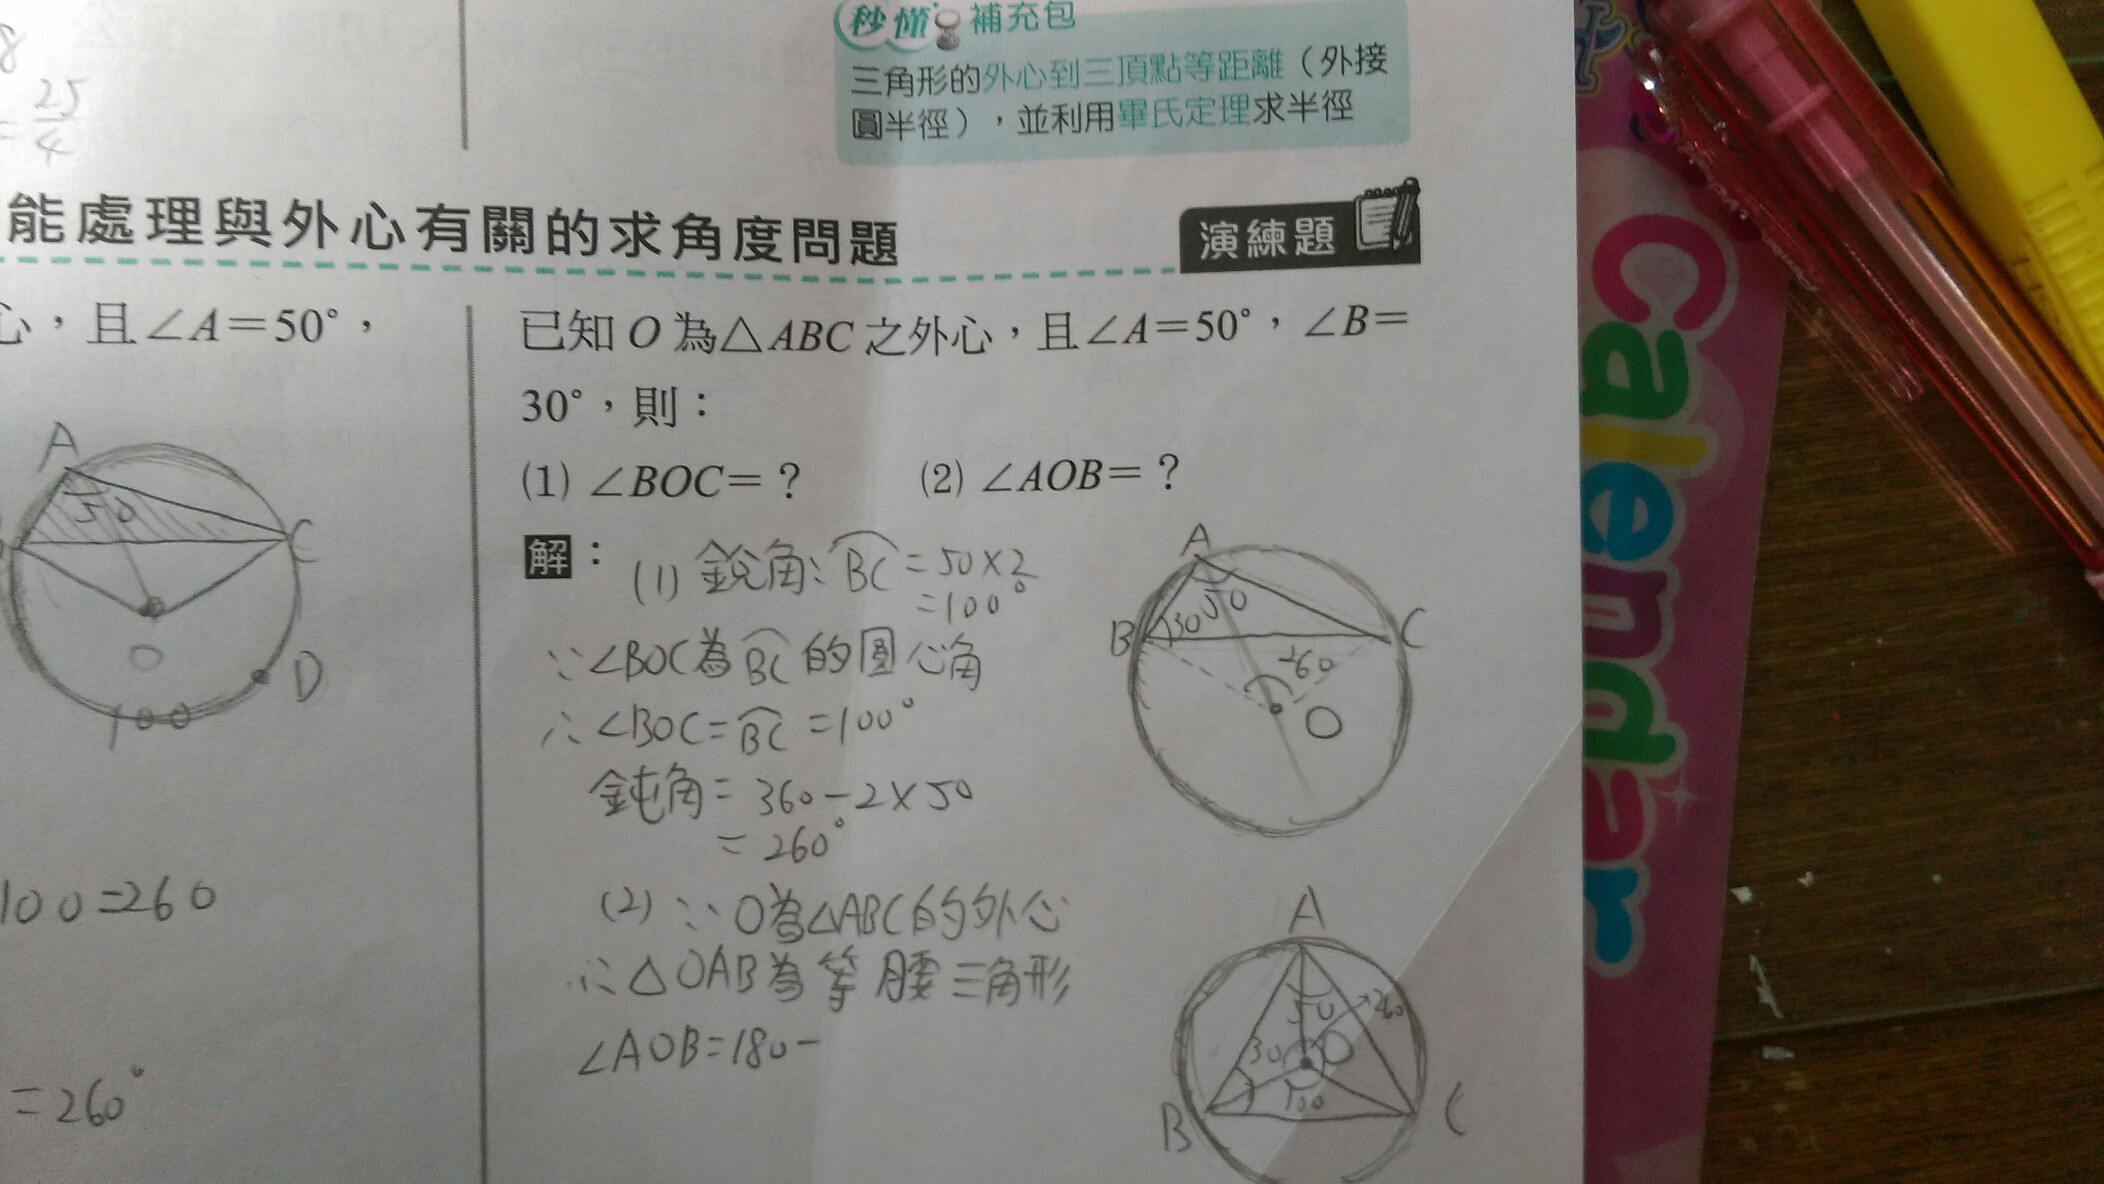 8
= 25/4
秒懂 補充包
三角形的外心到三頂點等距離（外接
圓半徑），並利用畢氏定理求半徑
能處理與外心有關的求角度問題
演練題
心，且∠A＝50°，
A
50
C
O
D
100
100=260
=260°
已知 O 為△ABC 之外心，且∠A＝50°，∠B＝
30°，則：
(1) ∠BOC＝？ (2) ∠AOB＝？
解：(1) 銳角：BC⌒=50×2
=100°
∵∠BOC為BC⌒的圓心角
∴∠BOC=BC⌒=100°
鈍角=360-2×50
=260°
(2) ∵O為△ABC的外心
∴△OAB為等腰三角形
∠AOB=180-
A
50
B
30
C
260
O
A
50
260
30
O
100
B
C
Calendar